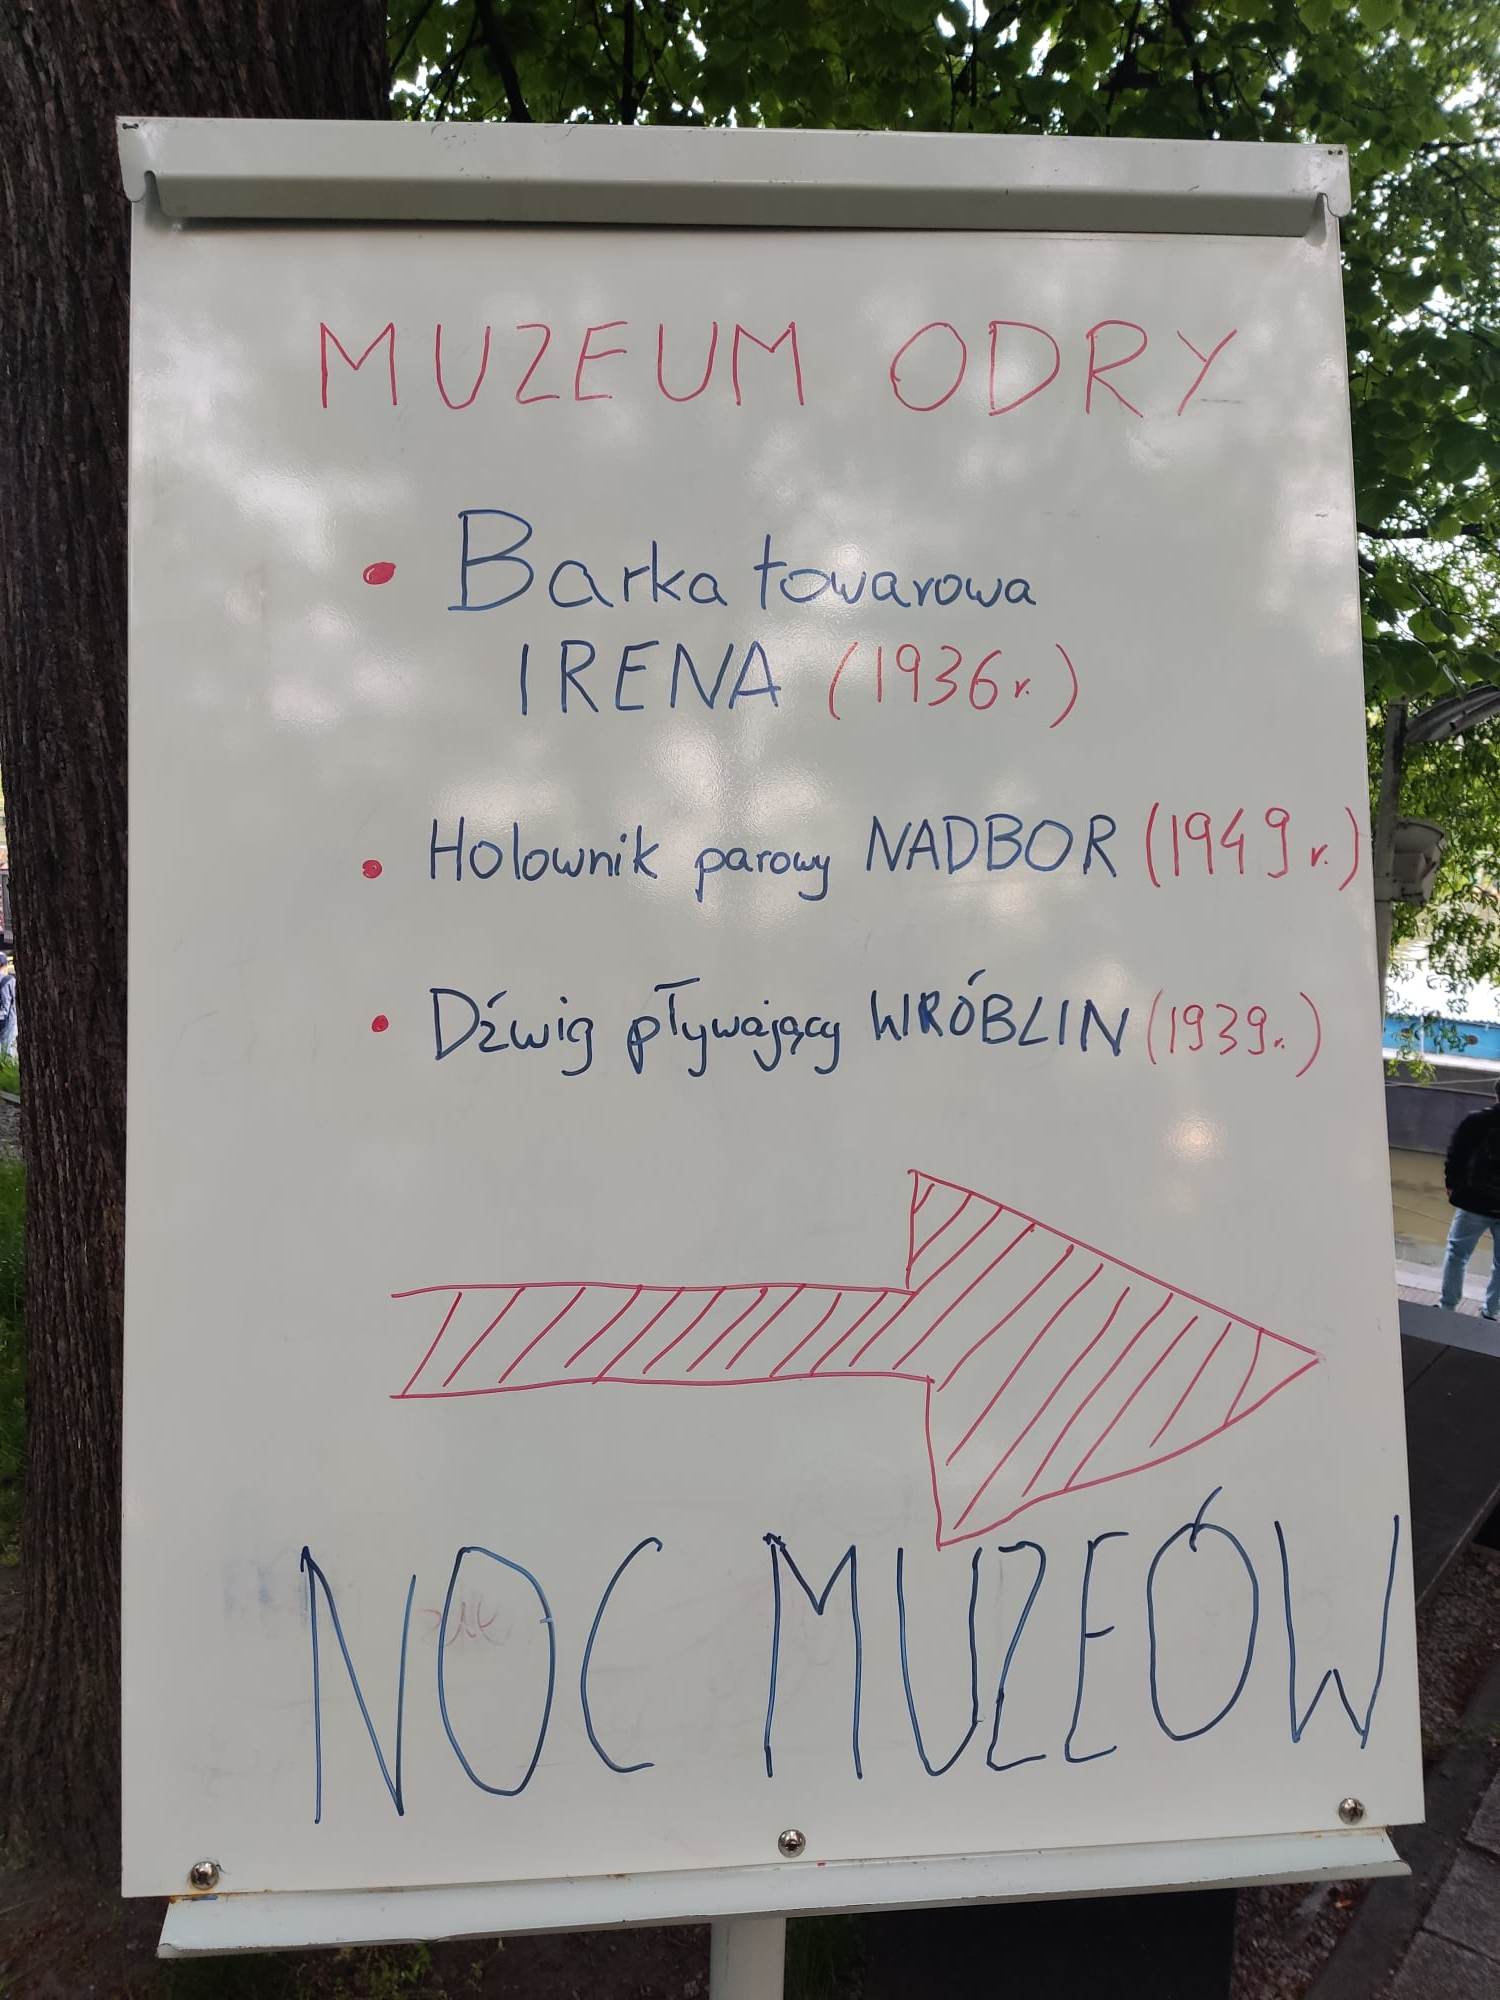 MUZEUM ODRY
• Barka towarowa
IRENA (1936r.)
• Holownik parowy NADBOR (1949r.)
• Dźwig pływający WRÓBLIN (1939r.)
NOC MUZEÓW